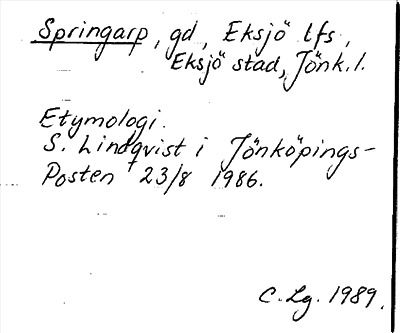 Springarp, gd, Eksjö lfs,
Eksjö stad, Jönk. l.
Etymologi.
S. Lindqvist i Jönköpings-
Posten 23/8 1986.
C. Lg. 1989.